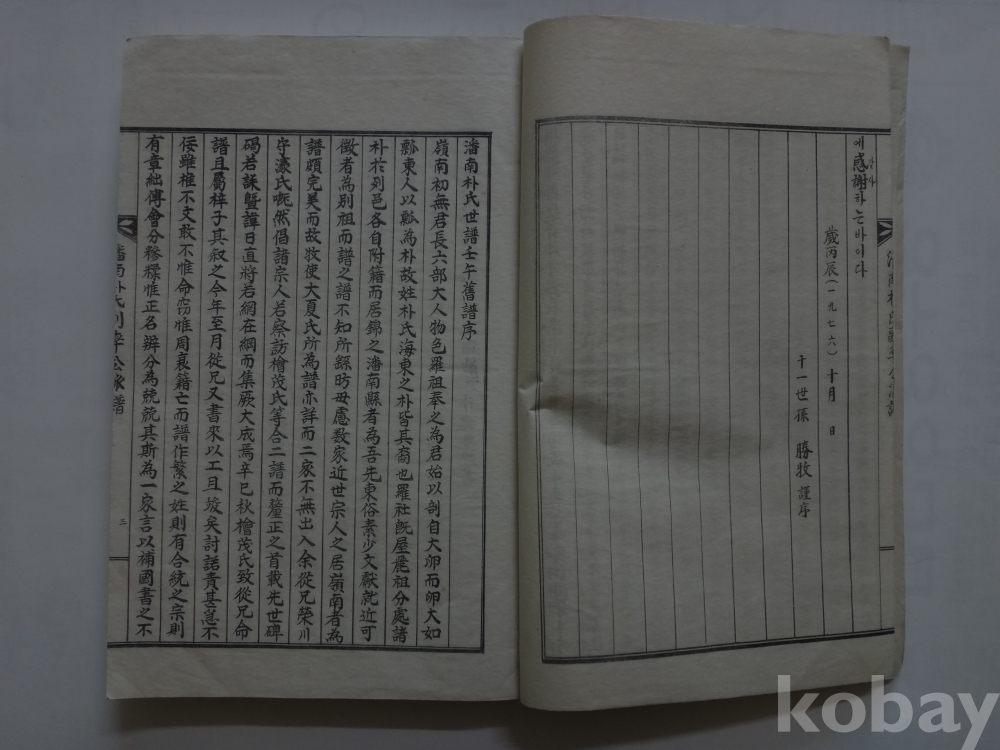 에感謝하는바이다
감사
歲丙辰(一九七六)十月 日
十一世孫 勝牧 謹序
潘南朴氏世譜壬午舊譜序
嶺南初無君長六部大人物色羅祖奉之為君始以剖自大卵而卵大如
瓢東人以瓢為朴故姓朴氏海東之朴皆其裔也羅社旣屋麗祖分處諸
朴於列邑各自附籍而居錦之潘南縣者為吾先東俗素少文献就近可
徵者為別祖而譜之譜不知所繇昉毋慮数家近世宗人之居嶺南者為
譜頗完美而故牧使大夏氏所為譜亦詳而二家不無出入余從兄榮川
守濠氏慨然倡諸宗人若察訪檜茂氏等合二譜而釐正之首載先世碑
碣若誄曁諱日直將若網在綱而集厥大成焉辛巳秋檜茂氏致從兄命
譜且屬梓子其叙之今年至月從兄又書來以工且竣矣討諾責甚急不
佞雖椎不文敢不惟命窃惟周衰籍亡而譜作繁之姓則有合統之宗則
有章絀傅會分𥻦糅惟正名辨分為兢兢其斯為一家言以補國書之不
潘南朴氏判率公派譜
三
kobay